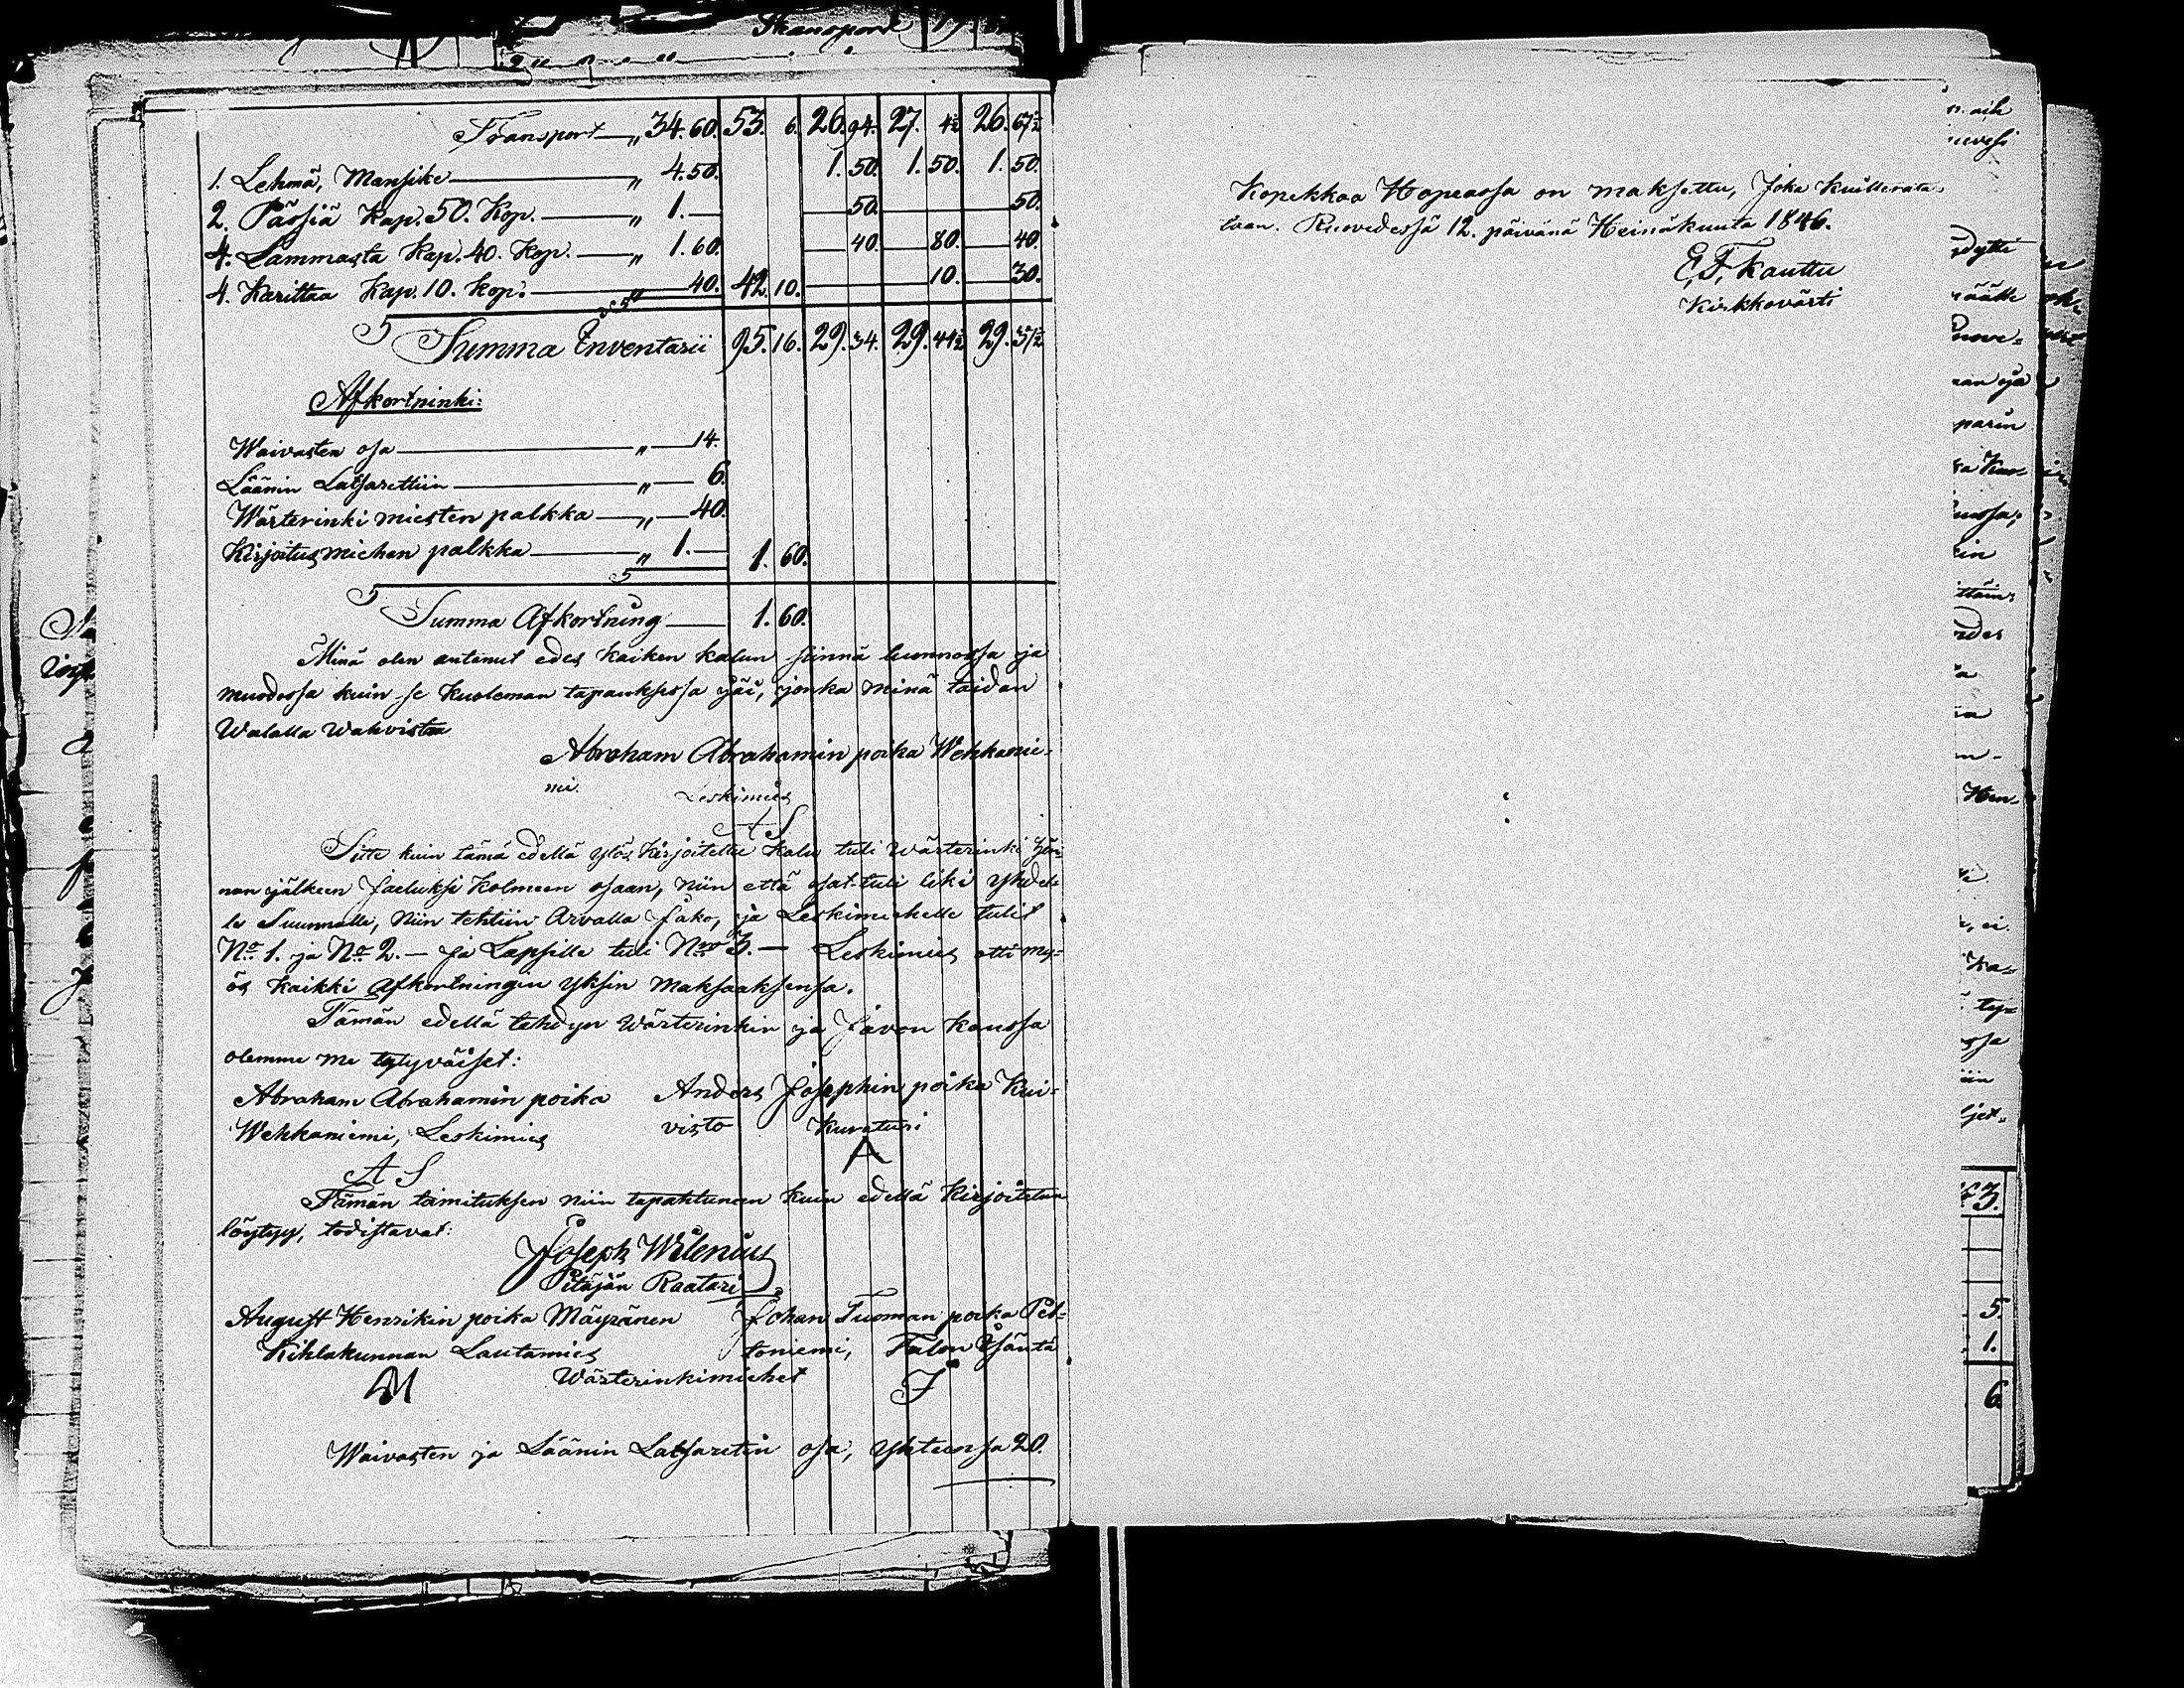 Transport
Transport — „ 34. 60. 53. 6. 26. 94. 27. 4½ 26. 67½
1. Lehmä, Mansike — „ 4. 50. 1. 50. 1. 50. 1. 50.
2. Pässiä Kap. 50. Kop. — „ 1. — — 50. — 50.
4. Lammasta Kap. 40. Kop. — „ 1. 60. — 40. — 80. — 40.
4. Karittaa Kap. 10. Kop. — „ 40. 42. 10. — 10. — 30.
Summa Inventarii 95. 16. 29. 34. 29. 44½ 29. 37½
Afkortninki:
Waivasten osa — „ — 14.
Läänin Latsarettiin — „ — 6.
Wärterinki miesten palkka — „ — 40.
Kirjoitus miehen palkka — „ 1. — 1. 60.
Summa Afkortning — 1. 60.
Minä olen antanut edes kaiken kalun siinä luonnossa ja
muodossa kuin se kuoleman tapauksessa jäi, jonka minä taidan
Walalla Wahvistaa
Abraham Abrahamin poika Wehkanie-
mi. Leskimies
A S
Sitte kuin tämä edellä ylös kirjoitettu kalu tuli wärterinki
nan jälkeen jaetuksi kolmeen osaan, niin että osat tuli liki yhdel-
le Suunnalle, niin tehtiin Arvalla Jako, ja Leskimiehelle tulit
No. 1. ja No. 2. — ja Lapsille tuli No. 3. — Leskimies otti my-
ös kaikki Afkortningin yksin maksaaksensa.
Tämän edellä tehdyn Wärterinkin ja Javon kanssa
olemme me tytyväiset:
Abraham Abrahamin poika Anders Josephin poika Kui-
Wehkaniemi, Leskimies visto Kuraturi
A S A
Tämän toimituksen niin tapahtuneen kuin edellä kirjoitettun
löytyy, todistavat:
Joseph Wilenius
Pitäjän Raatari
August Henrikin poika Mäyränen Johan Tuoman poika Pet-
Kihlakunnan Lautamies toniemi, Talon Isäntä
Wärterinkimiehet
M J
Waivasten ja Läänin Latsaretin osa, yhteensä 20.
Kopekkaa Hopeassa on maksettu, Joka kuitterata-
taan. Ruovedessä 12. päivänä Heinäkuuta 1846.
E. F. Kauttu
Kirkkovärti